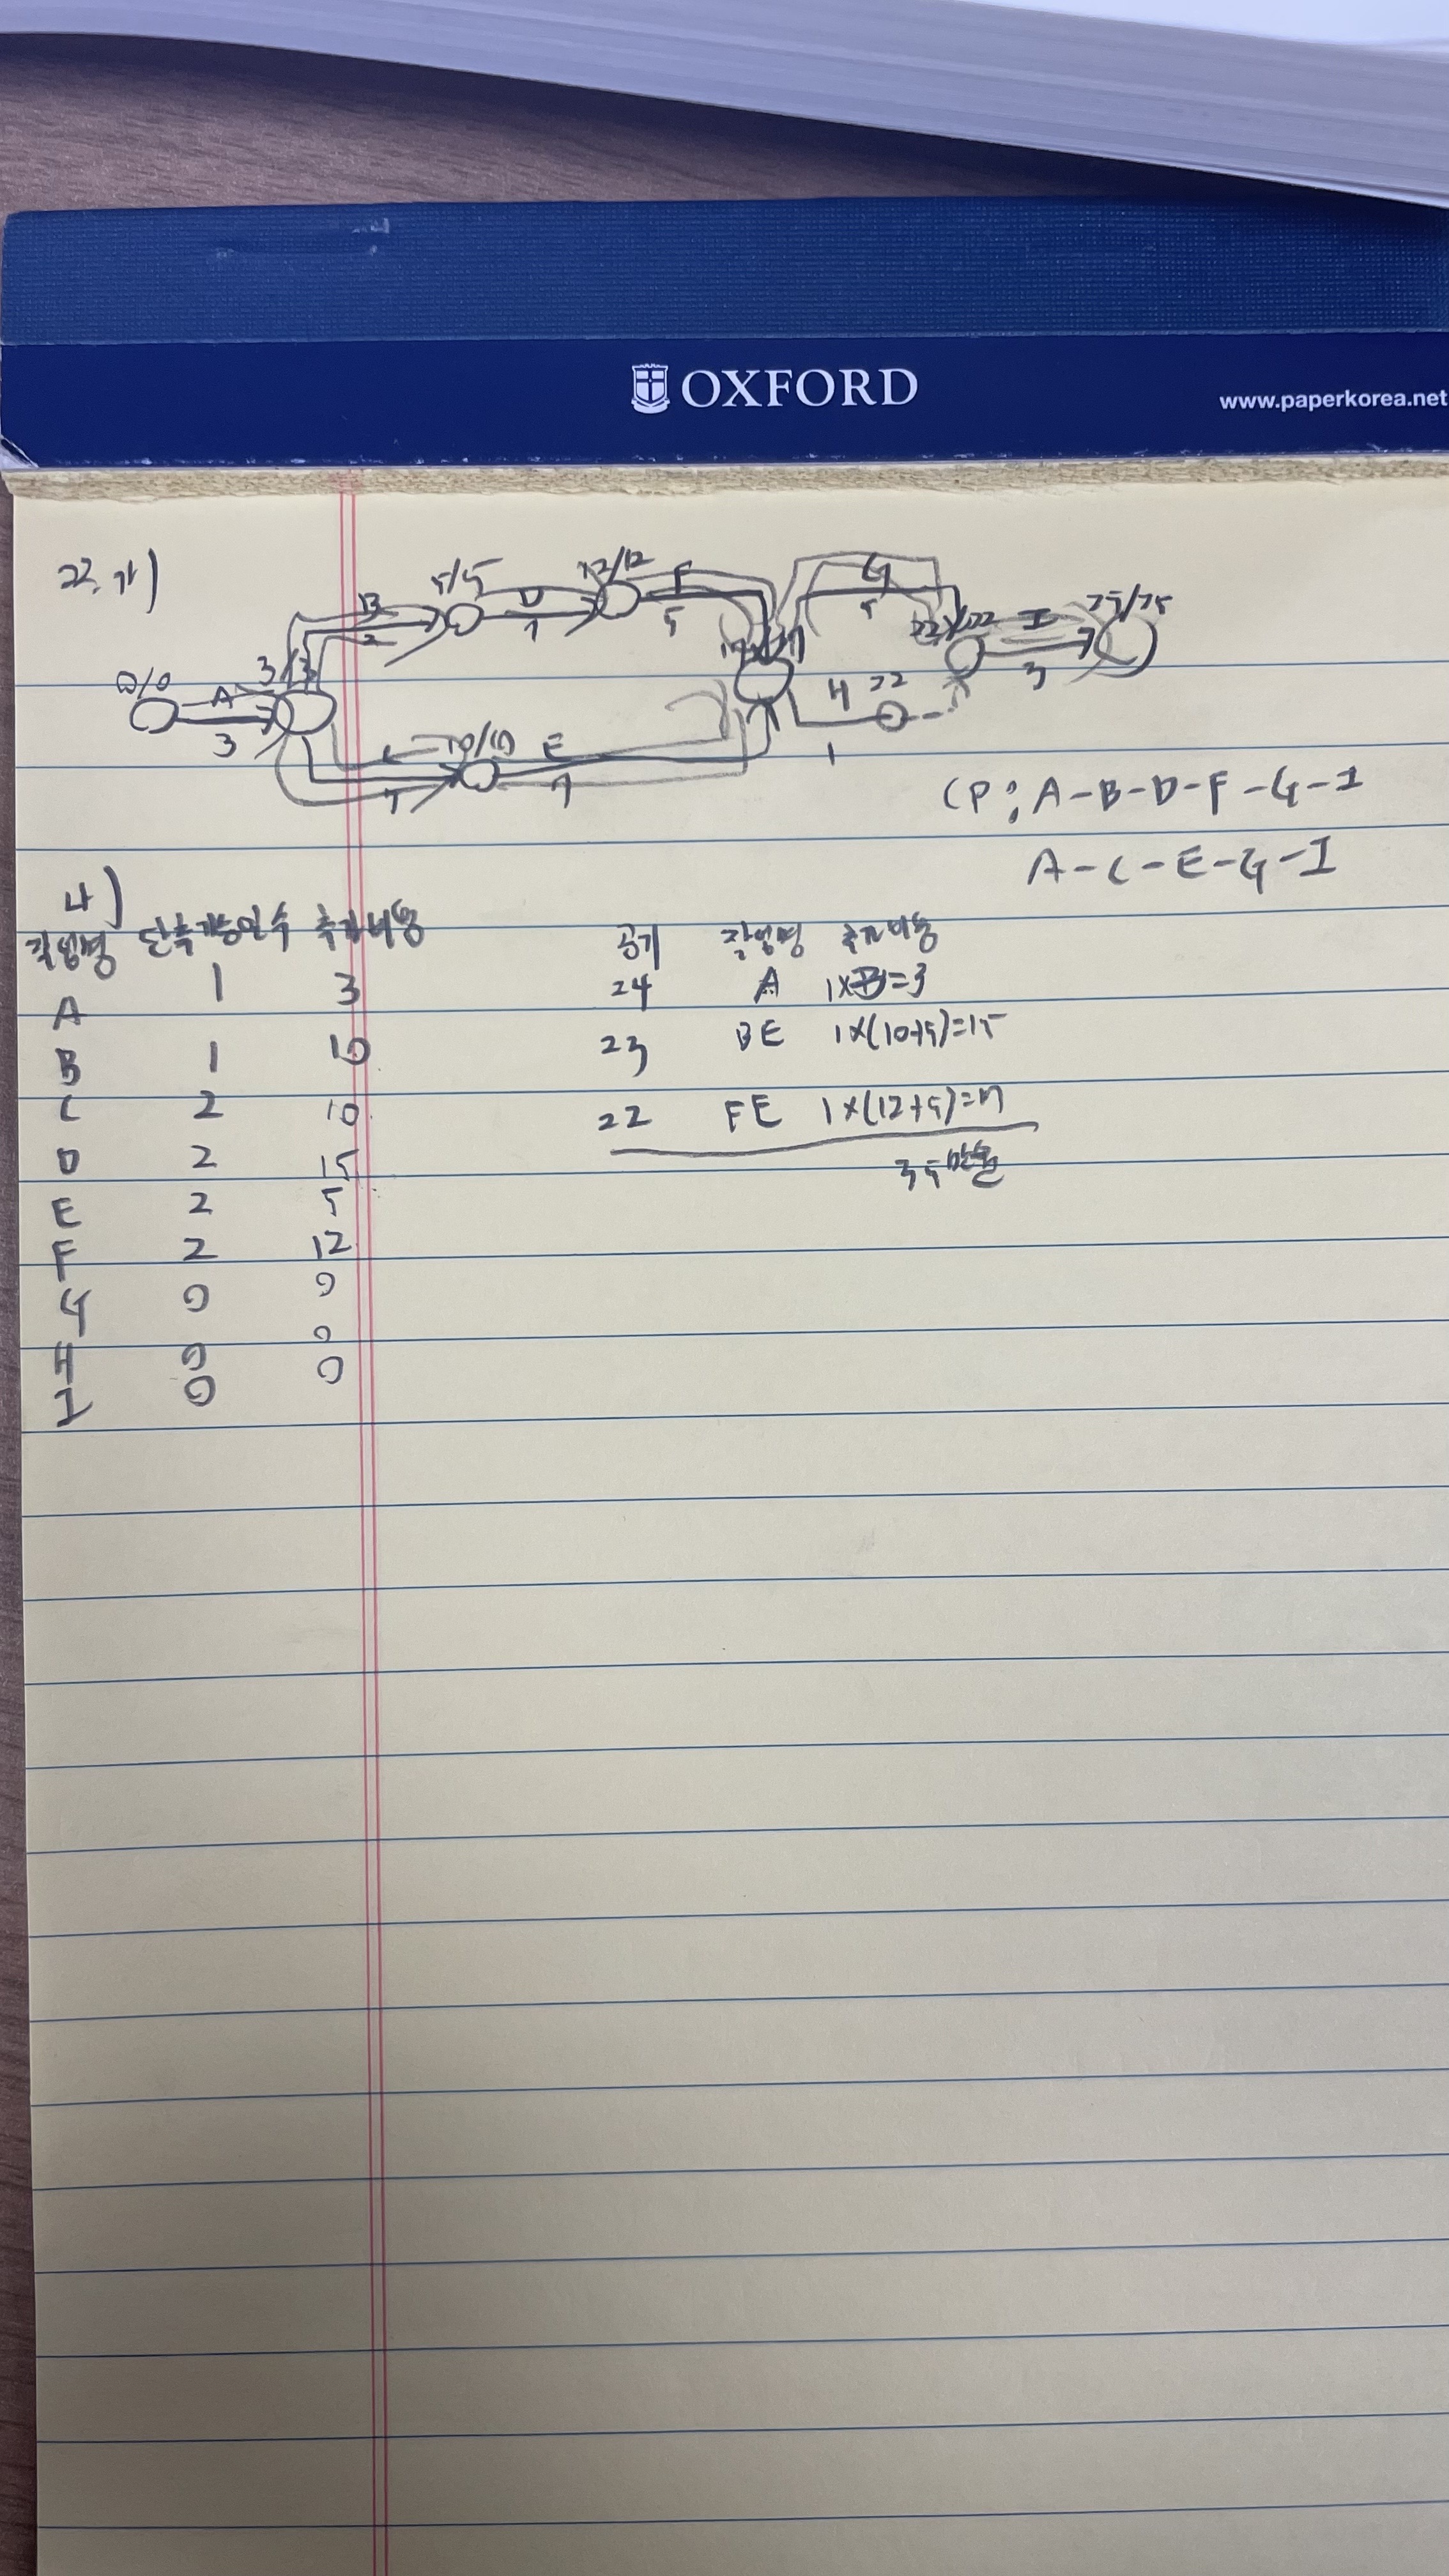 OXFORD
www.paperkorea.net
22. 가)
0/0 A 3
3/3 B 2
5/5 D 7
12/12 F 5
17/17 G 5
22/22 I 3
25/25
7 10/10 E 7
H 22 1
CP: A-B-D-F-G-I
A-C-E-G-I
나)
작업명 단축가능일수 추가비용
A 1 3
B 1 10
C 2 10
D 2 15
E 2 5
F 2 12
G 0 0
H 0 0
I 0 0
공기 작업명 추가비용
24 A 1×3=3
23 BE 1×(10+5)=15
22 FE 1×(12+5)=17
35만원